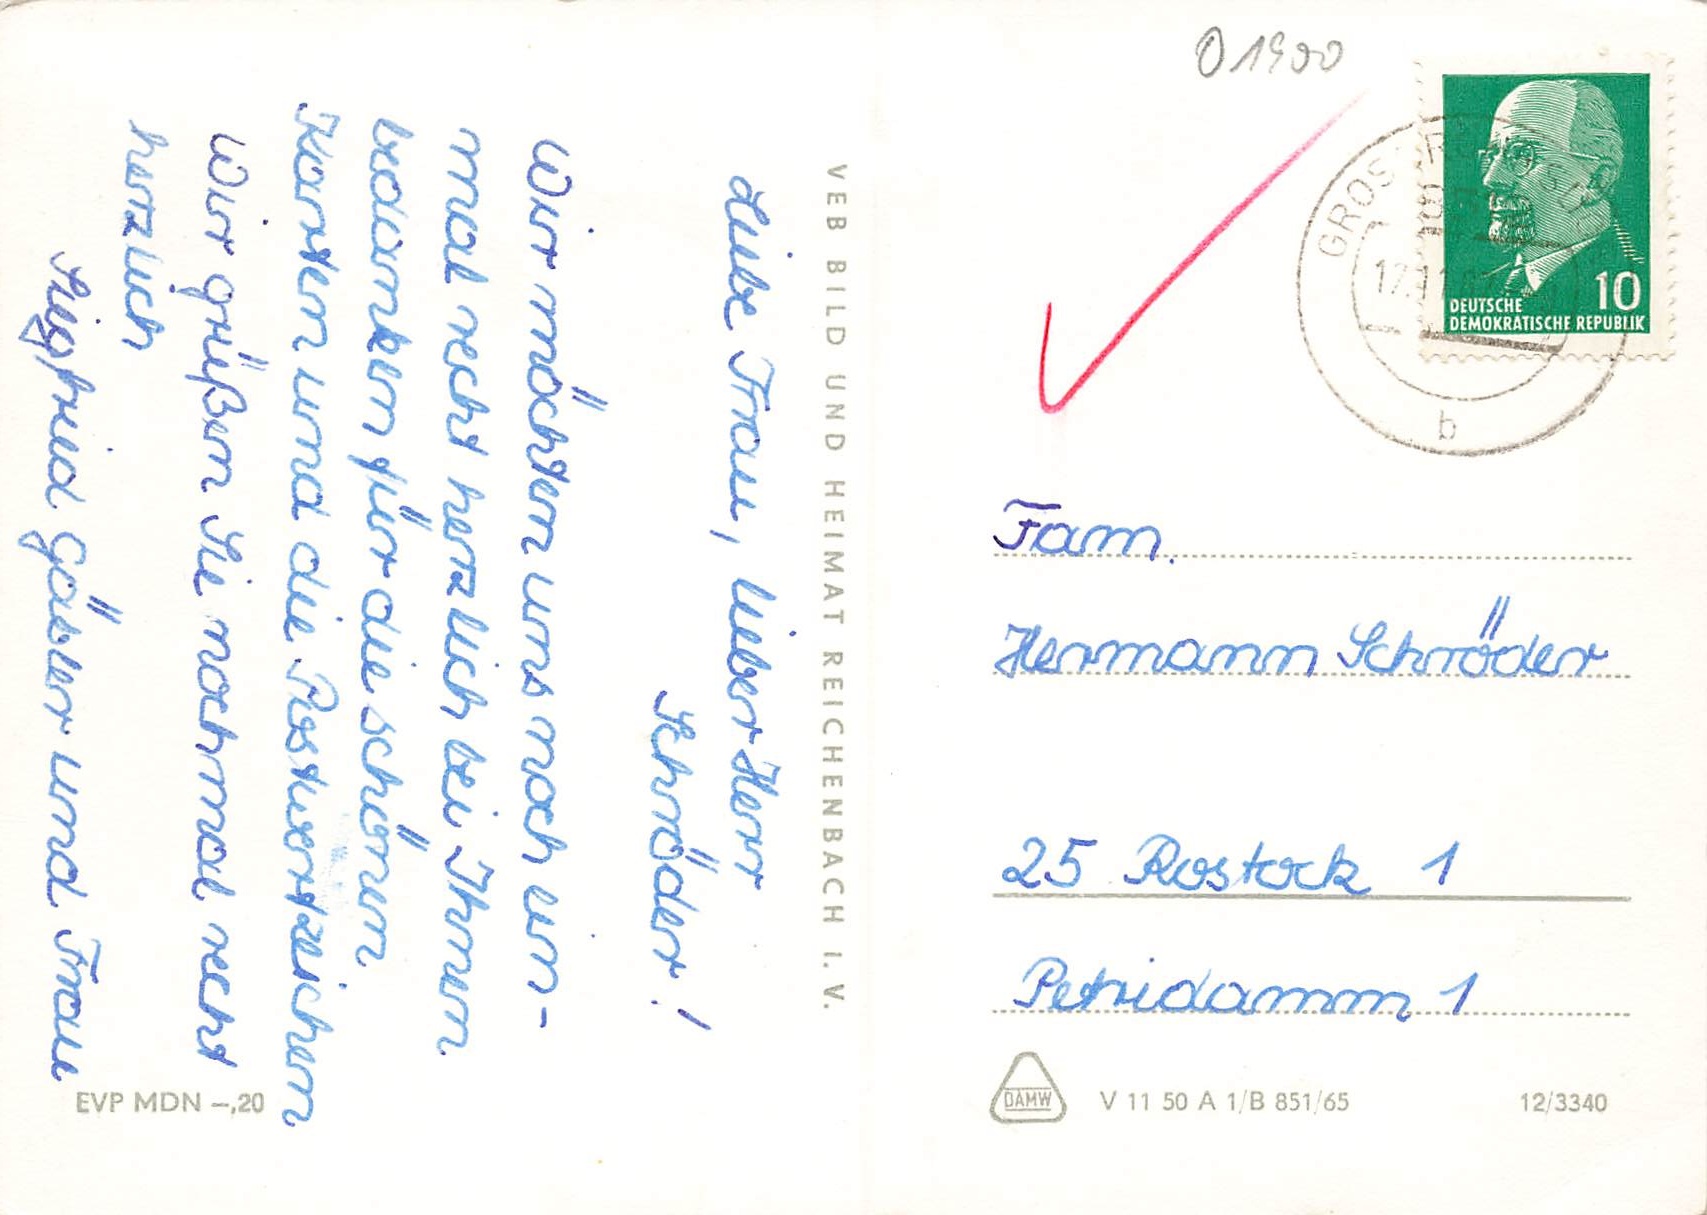 Liebe Frau, lieber Herr
Schröder!
Wir möchten uns noch ein-
mal recht herzlich bei Ihnen
bedanken für die schönen
Karten und die Postwertzeichen
Wir grüßen Sie nochmal recht
herzlich
Siegfried Gäbler und Frau
EVP MDN –,20
VEB BILD UND HEIMAT REICHENBACH I. V.
01900
10
DEUTSCHE
DEMOKRATISCHE REPUBLIK
b
Fam.
Hermann Schröder
25 Rostock 1
Petridamm 1
DAMW
V 11 50 A 1/B 851/65
12/3340